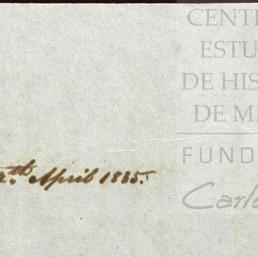 CENT
ESTU
DE HIS
DE M
FUND
Carl
th April 1885.